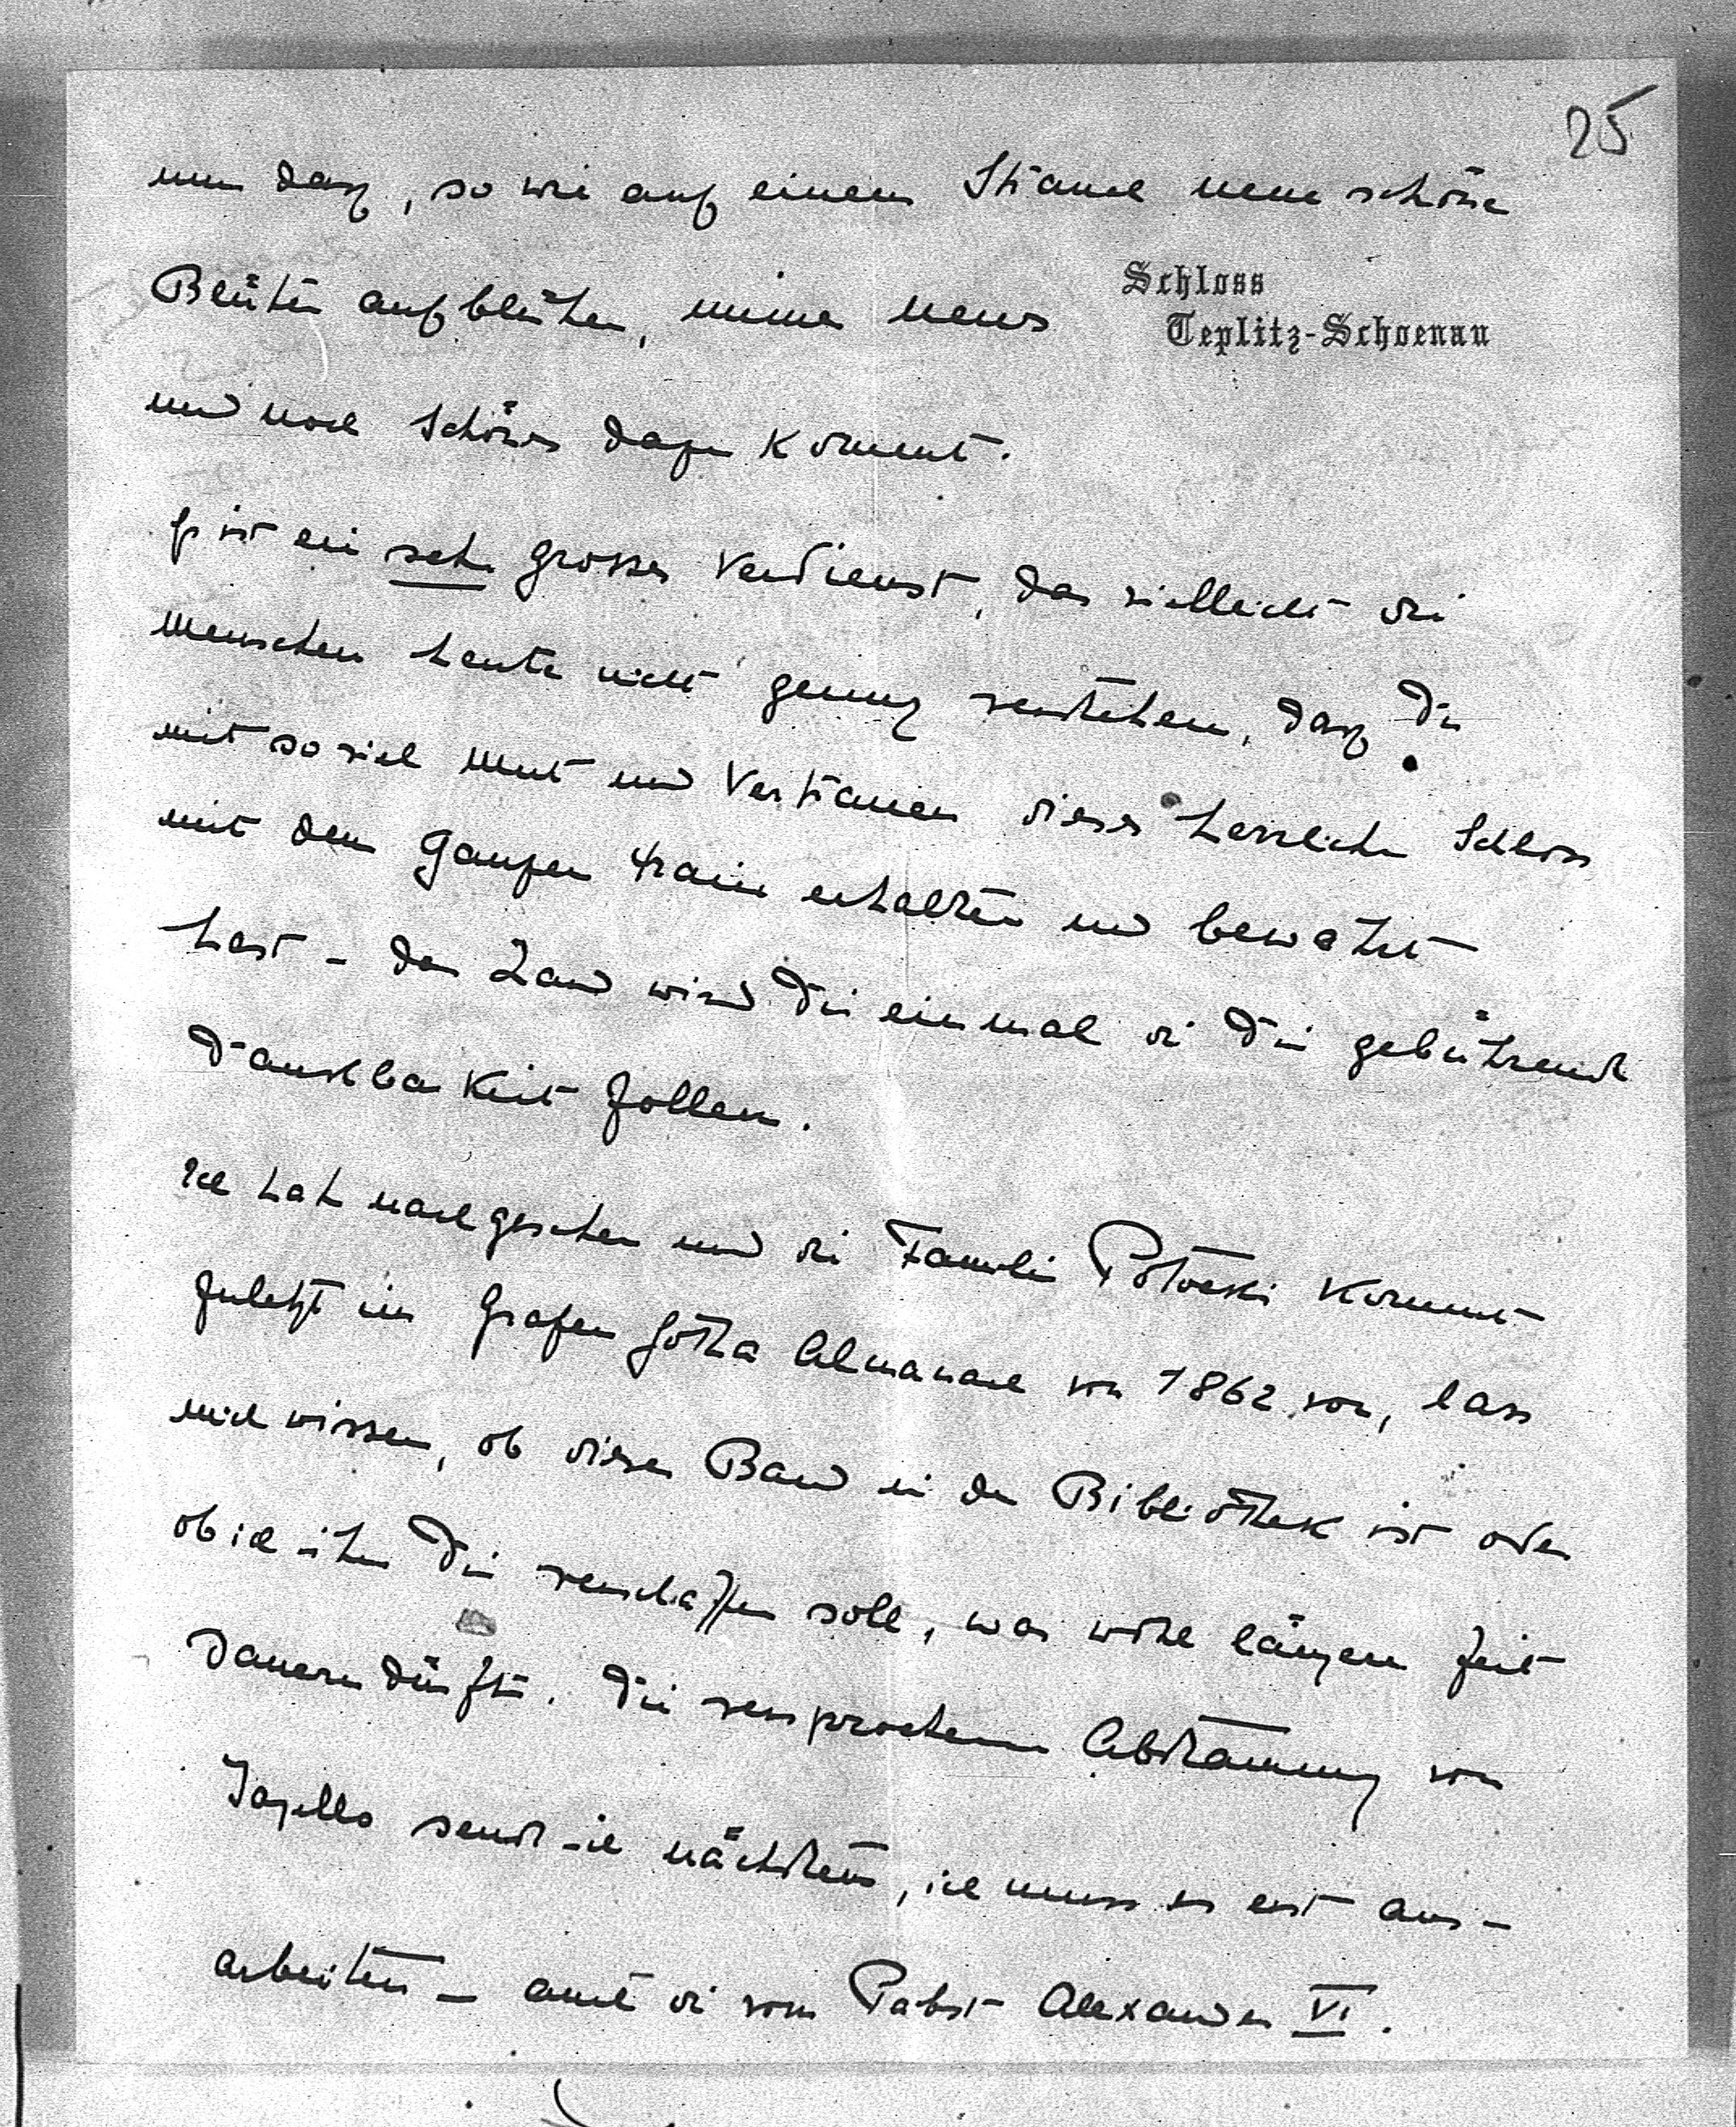 25
nun dasz, so wie auf einem Strauch neue schöne
Blüten aufblühen, immer neues
Schloss
Teplitz-Schoenau
und noch Schönes dazu kommt.
Es ist ein sehr grosses Verdienst, das vielleicht die
Menschen heute nicht genug verstehen, dasz Du
mit so viel Mut und Vertrauen dieses herrliche Schloss
mit dem ganzen train erhalten und bewahrt
hast – das Land wird Dir einmal die Dir gebührende
Dankbarkeit zollen.
Ich habe nachgesehen und die Familie Potocki kommt
zuletzt im Grafen Gotha Almanach von 1862 vor, lass
mich wissen, ob dieser Band in der Bibliothek ist oder
ob ich ihn Dir verschaffen soll, was wohl längere Zeit
dauern dürfte. Die versprochene Abstammung von
Jagello sende ich nächstens, ich muss es erst aus-
arbeiten – auch die vom Pabst Alexander VI.